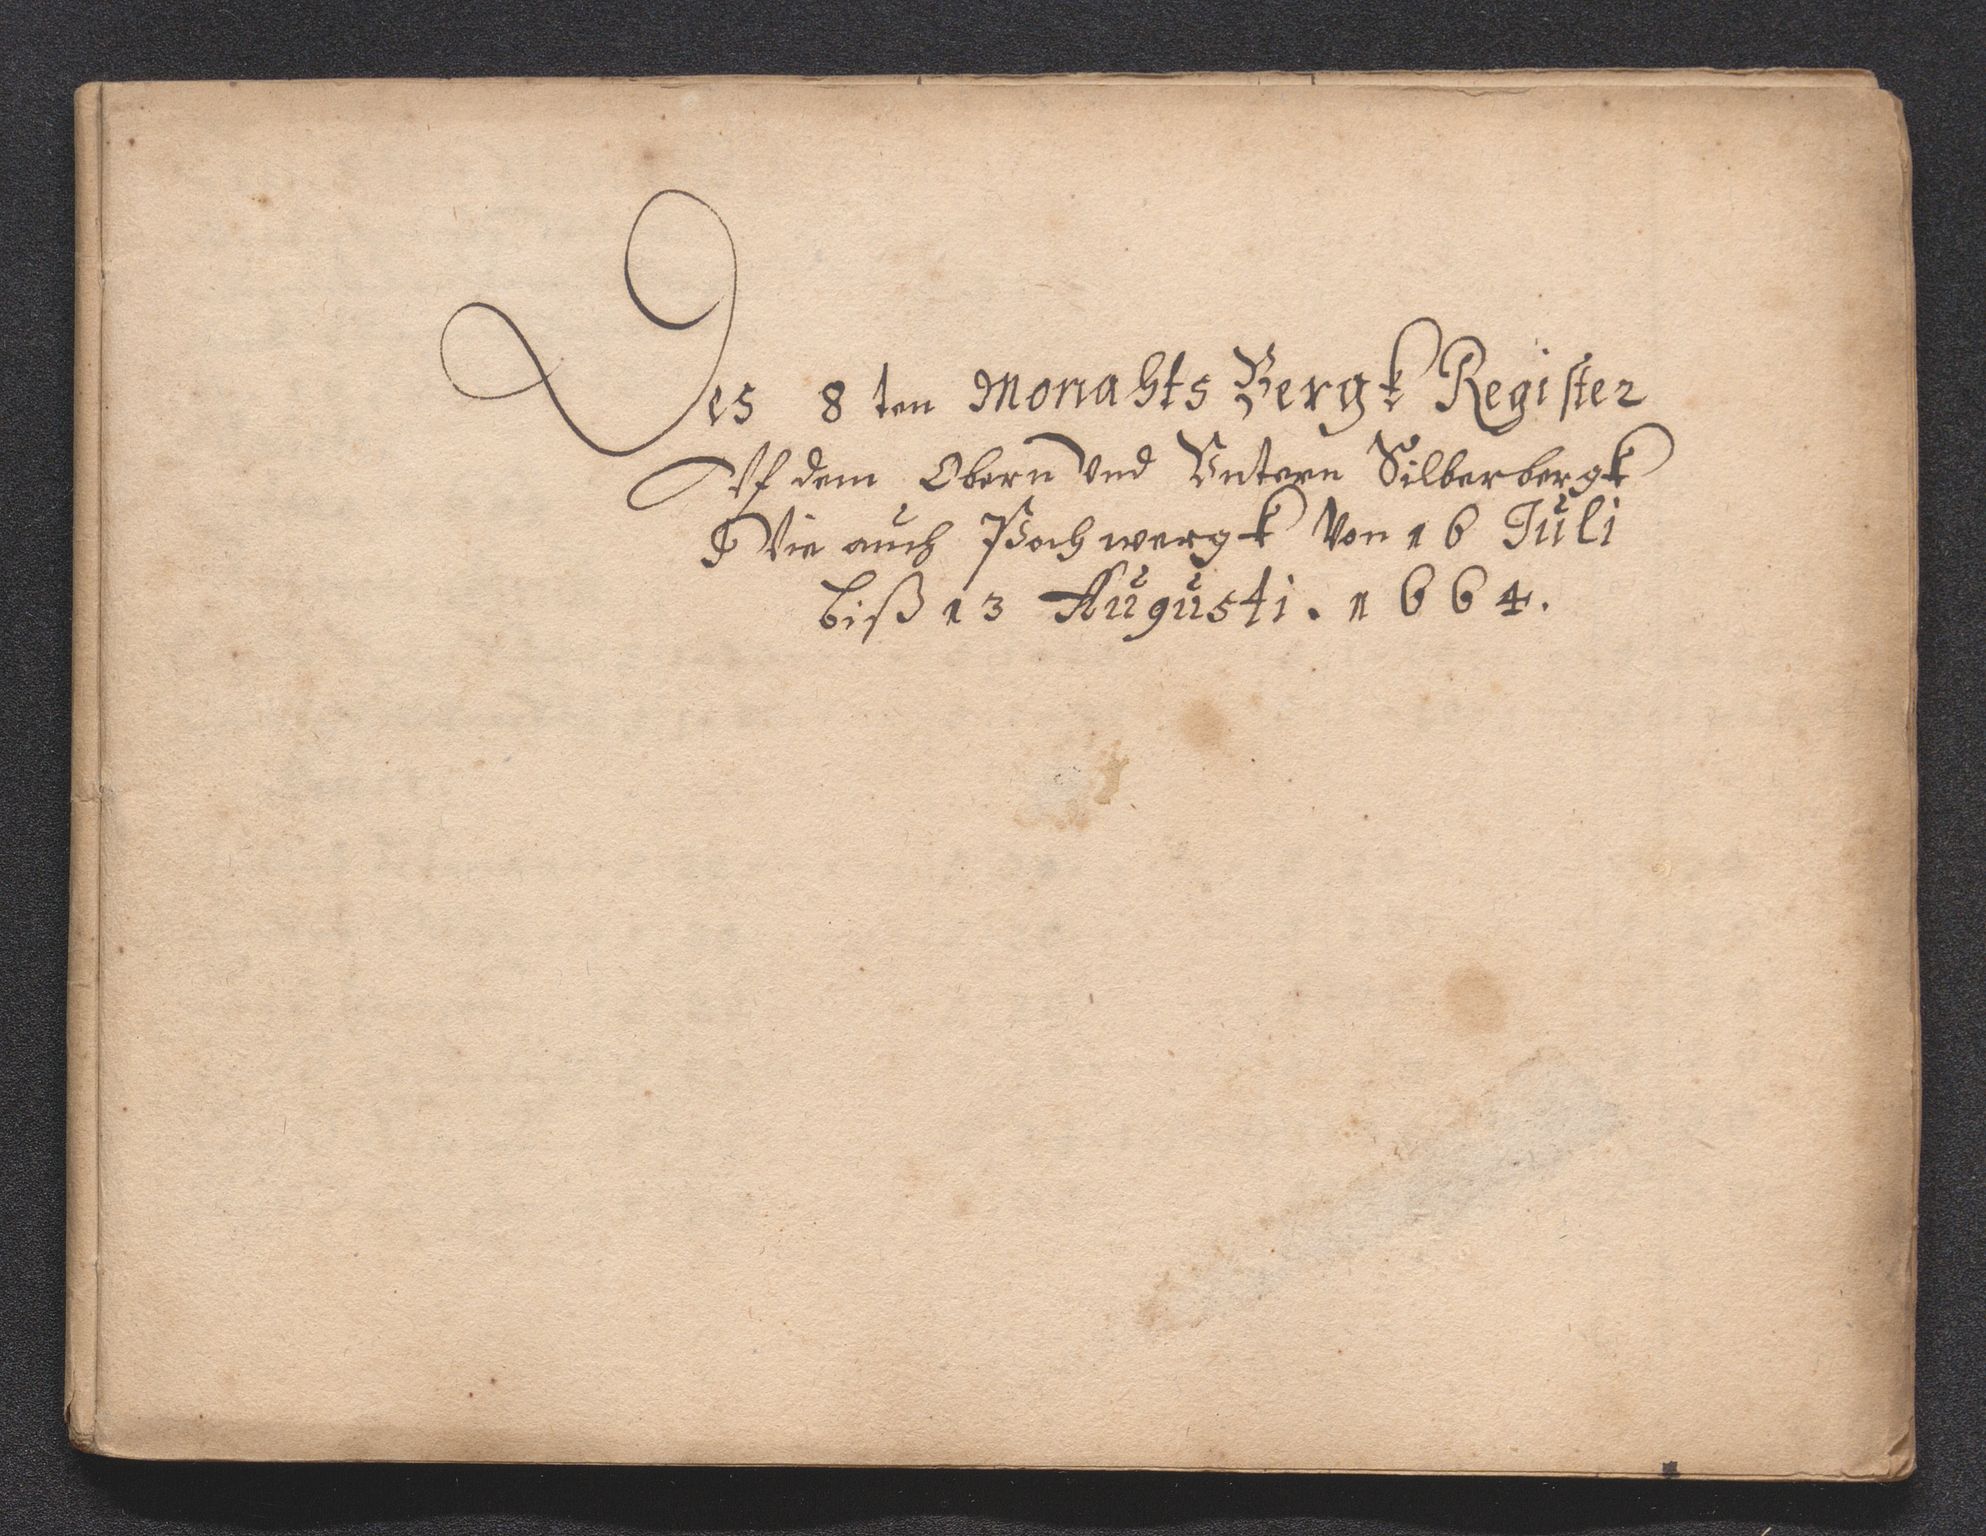 Des 8ten Monahts Bergk Register
Vf dem Obern Vnd Vntern Silberbergk
Wie auch Pochwergk Von 16 Juli
biß 13 Augusti. 1664.